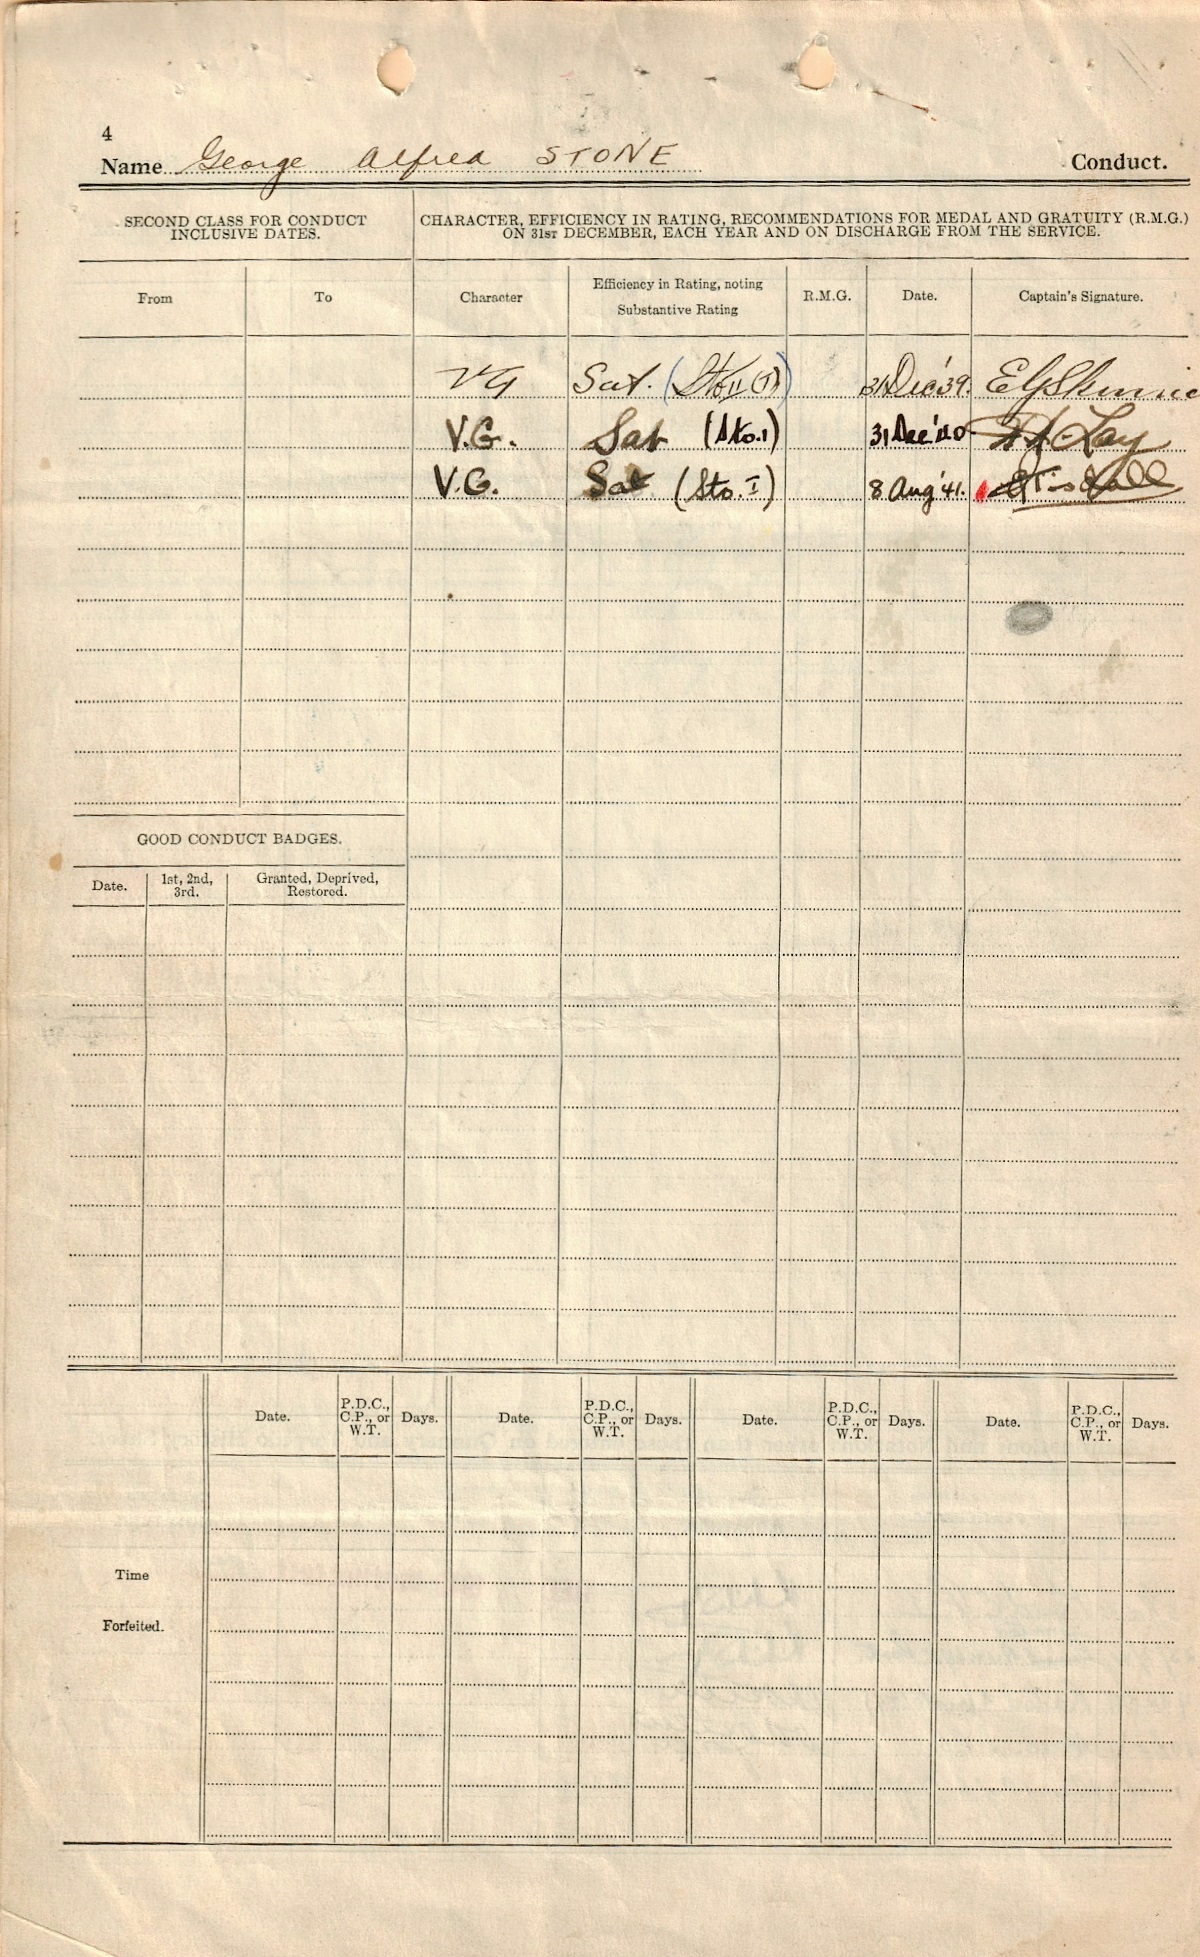 4
Name George Alfred STONE Conduct.
SECOND CLASS FOR CONDUCT
INCLUSIVE DATES.
CHARACTER, EFFICIENCY IN RATING, RECOMMENDATIONS FOR MEDAL AND GRATUITY (R.M.G.)
ON 31ST DECEMBER, EACH YEAR AND ON DISCHARGE FROM THE SERVICE.
From To Character Efficiency in Rating, noting
Substantive Rating R.M.G. Date. Captain's Signature.
VG Sat. (Sto II (T)) 31 Dec '39.
V.G. Sat (Sto.1) 31 Dec '40 Lay
V.G. Sat (Sto. I) 8 Aug '41.
GOOD CONDUCT BADGES.
Date. 1st, 2nd,
3rd. Granted, Deprived,
Restored.
Date. P.D.C.,
C.P., or
W.T. Days. Date. P.D.C.,
C.P., or
W.T. Days. Date. P.D.C.,
C.P., or
W.T. Days. Date. P.D.C.,
C.P., or
W.T. Days.
Time
Forfeited.